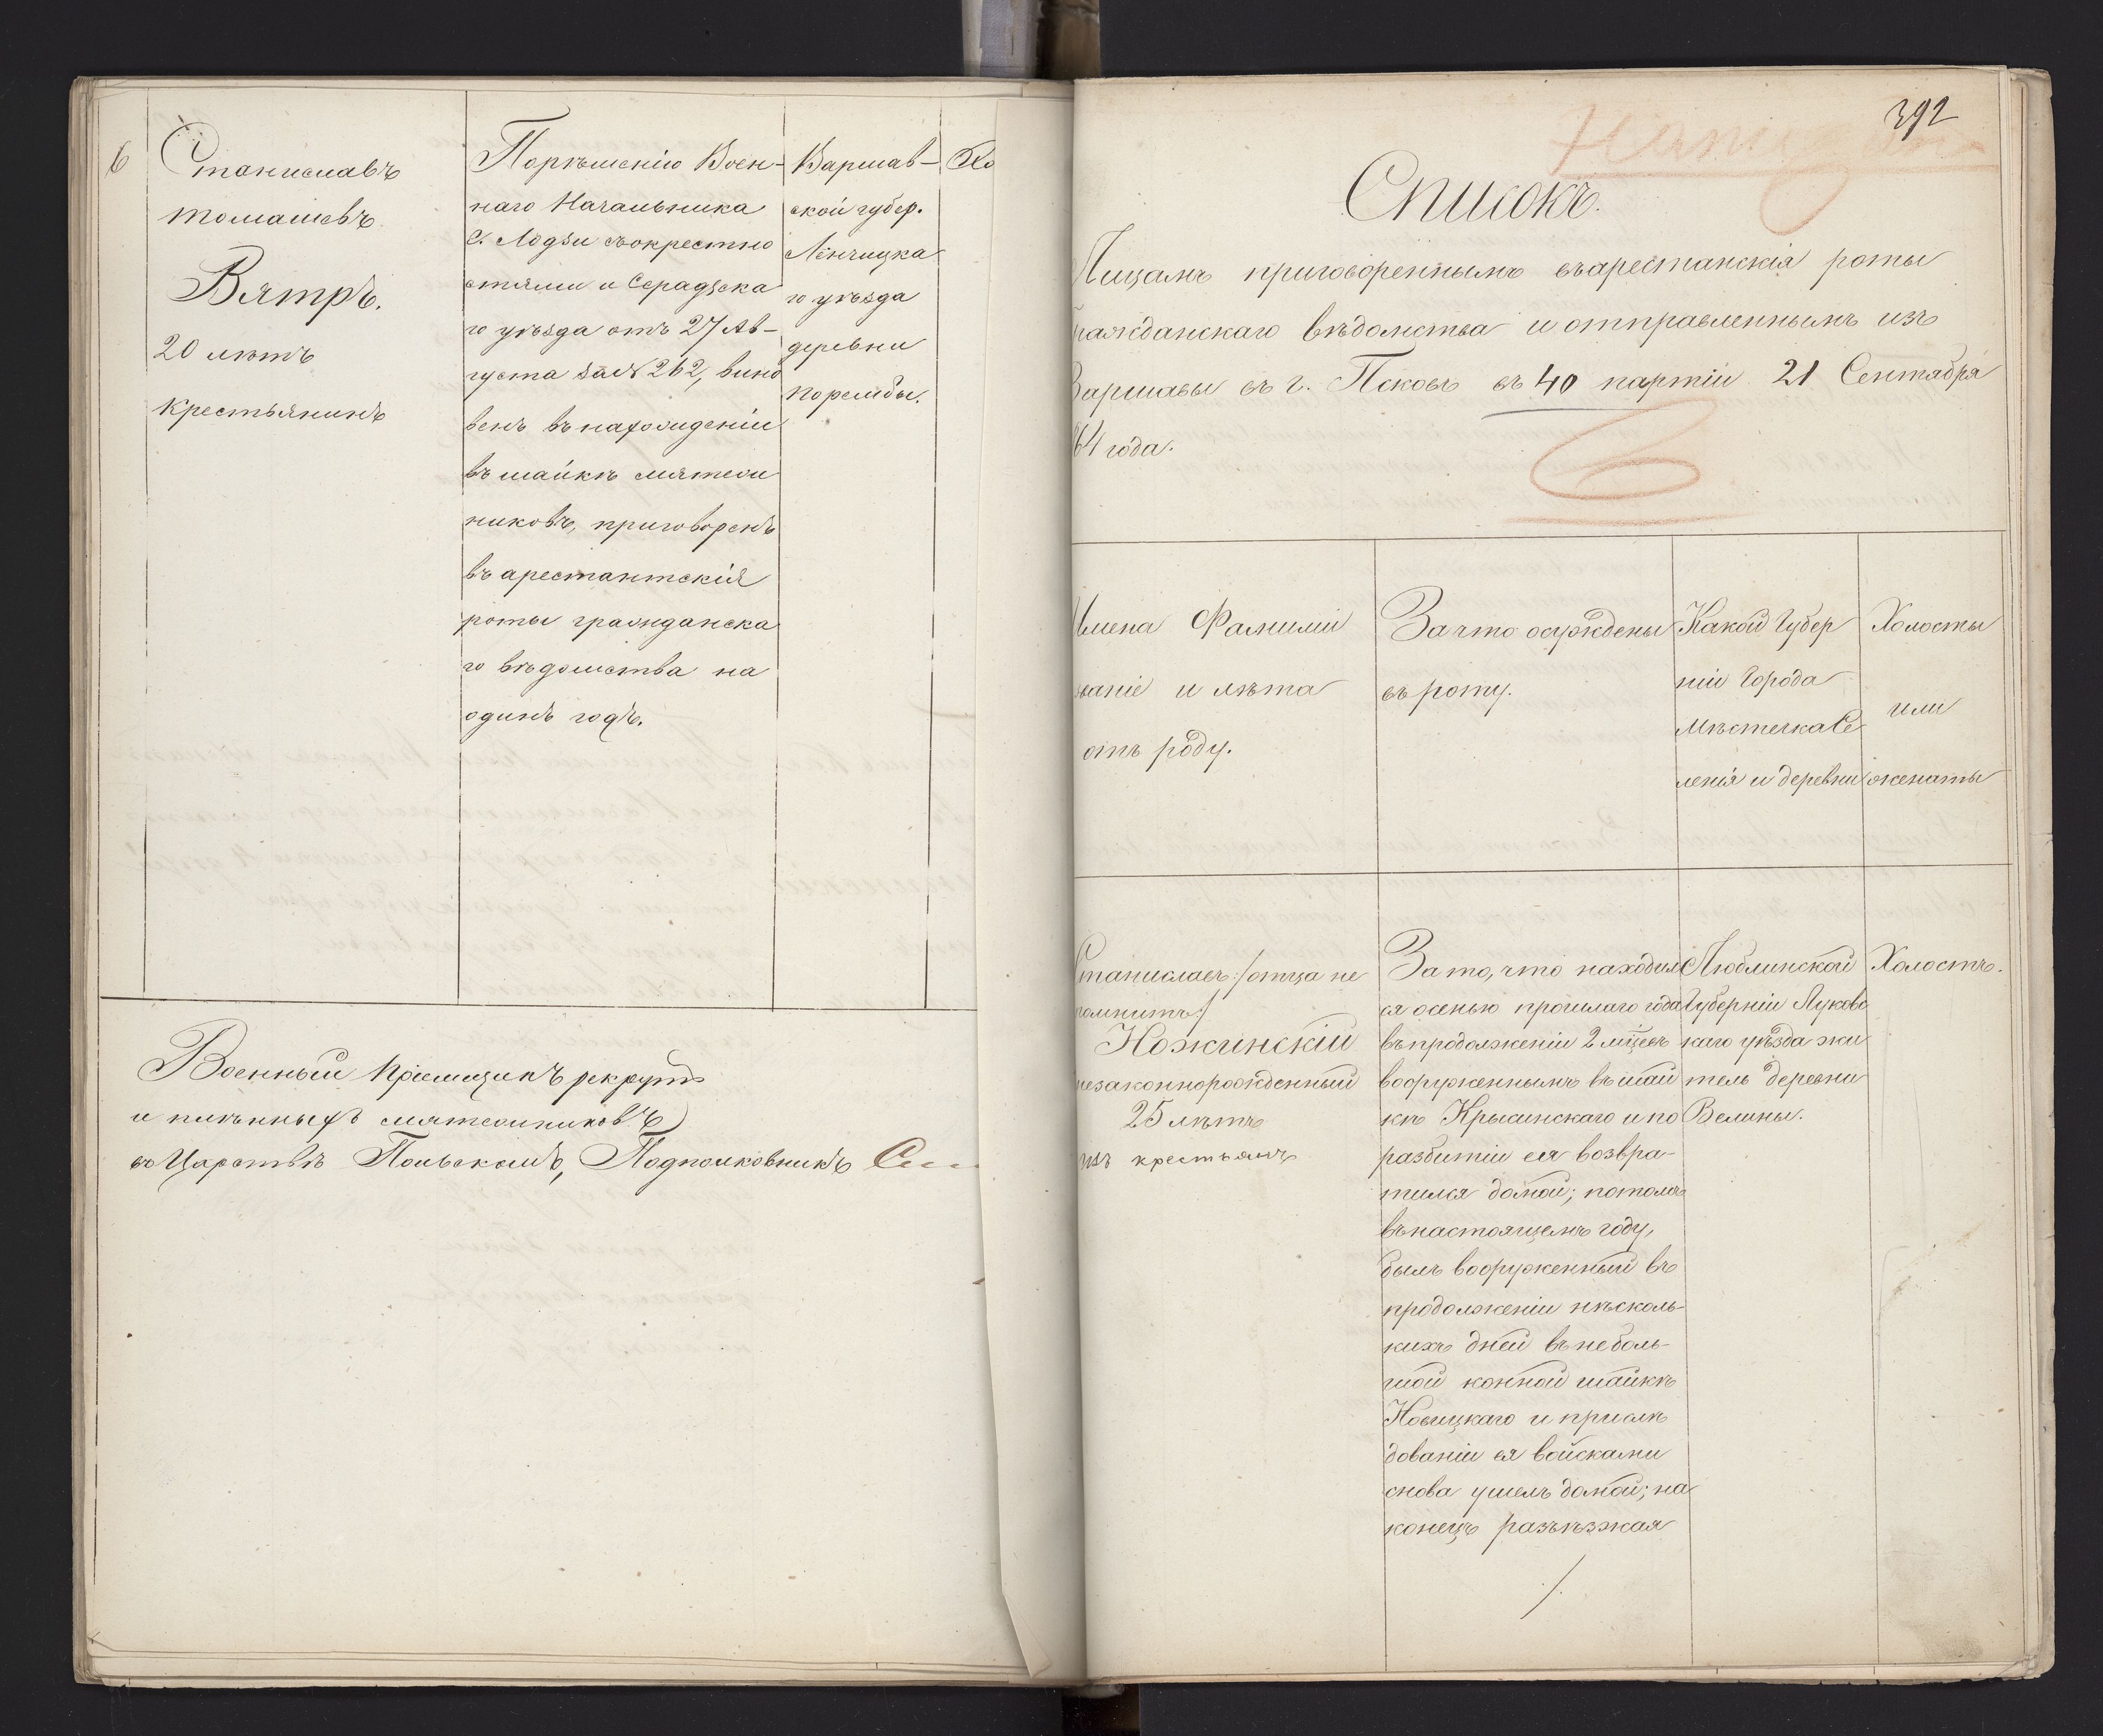 6
Станиславъ
Томашевъ
Вятръ.
20 лѣтъ
крестьянинъ
По рѣшенію Воен-
наго Начальника
г. Лодзи съ окрестно
стями и Серадзска
го уѣзда отъ 27 Ав-
густа за № 262, вино
венъ въ нахожденіи
въ шайкѣ мятеж
никовъ, приговоренъ
въ арестантскія
роты гражданска
го вѣдомства на
одинъ годъ.
Варшав-
ской губер.
Ленчицка
го уѣзда
деревни
Порембы.
Хо
Военный Пріемщикъ рекрутъ
и плѣнныхъ мятежниковъ
въ Царствѣ Польскомъ, Подполковникъ
392
Списокъ.
Лицамъ приговореннымъ въ арестанскія роты
гражданскаго вѣдомства и отправленнымъ изъ
Варшавы въ г. Псковъ въ 40 партіи 21 Сентября
64 года.
Имена Фамиліи
званіе и лѣта
отъ роду.
За что осуждены
въ роту.
Какой Губер
ніи Города
Мѣстечка Се
ленія и деревни
Холосты
или
женаты
Станиславъ /отца не
помнитъ/
Ножинскій
незаконнорожденный
25 лѣтъ
изъ крестьянъ
За то, что находил
ся осенью прошлаго года
въ продолженіи 2 мѣцевъ
вооруженнымъ въ шай
кѣ Крысинскаго и по
разбитіи ея возвра-
тился домой; потомъ
въ настоящемъ году,
былъ вооруженный въ
продолженіи нѣсколь-
кихъ дней въ неболь-
шой конной шайкѣ
Новицкаго и при слѣ
дованіи ея войсками
снова ушелъ домой; на
конецъ разъѣзжая
Люблинской
Губерніи Луковс
каго уѣзда жи
тель деревни
Велины.
Холостъ.